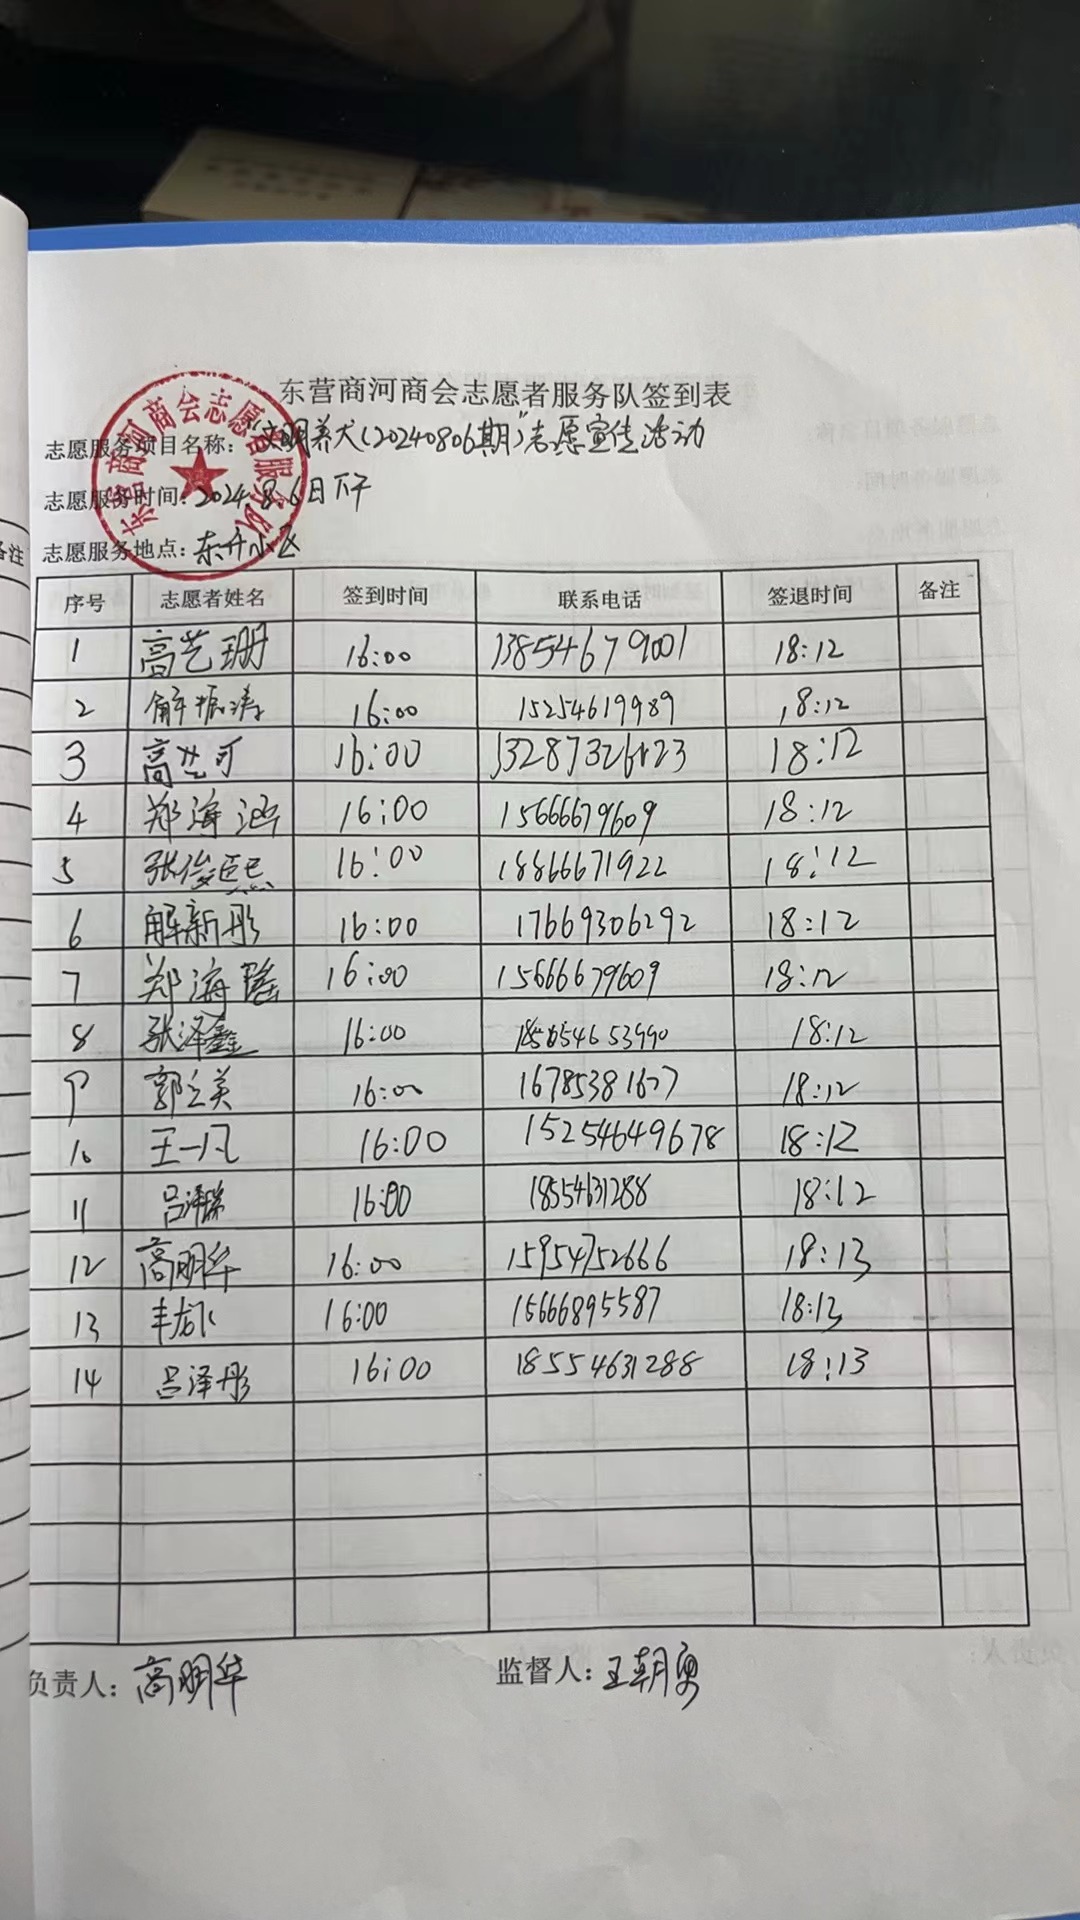 东营商河商会志愿者服务队签到表
志愿服务项目名称："文明养犬(20240806期)"志愿宣传活动
志愿服务时间：2024.8.6日下午
志愿服务地点：东升小区
东营商河商会志愿者服务队
备注
序号 志愿者姓名 签到时间 联系电话 签退时间 备注
1 高艺珊 16:00 13854679001 18:12
2 解振涛 16:00 15254619989 18:12
3 高艺可 16:00 18:12
4 郑海涵 16:00 15666679609 18:12
5 张俊熙 16:00 18866671922 18:12
6 解新彤 16:00 17669306292 18:12
7 郑海瑶 16:00 15666679609 18:12
8 张泽鑫 16:00 18:12
9 郭立美 16:00 18:12
10 王一凡 16:00 15254649678 18:12
11 吕泽 16:00 18554631288 18:12
12 高明华 16:00 15954752666 18:13
13 16:00 15666895587 18:13
14 吕泽彤 16:00 18554631288 18:13
负责人：高明华 监督人：王朝勇